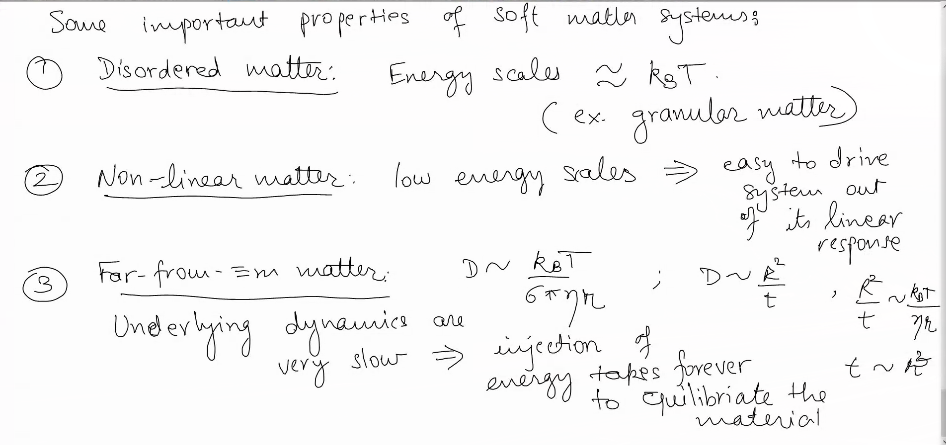 Some important properties of soft matter systems:
① Disordered matter: Energy scales ≈ k_BT.
(ex. granular matter)
② Non-linear matter: low energy scales ⇒ easy to drive
system out
of its linear
response
③ Far-from-≡m matter: D ~ k_BT / 6πηr ; D ~ R²/t , R²/t ~ k_BT/ηr
Underlying dynamics are
very slow ⇒ injection of
energy takes forever
to equilibriate the
material